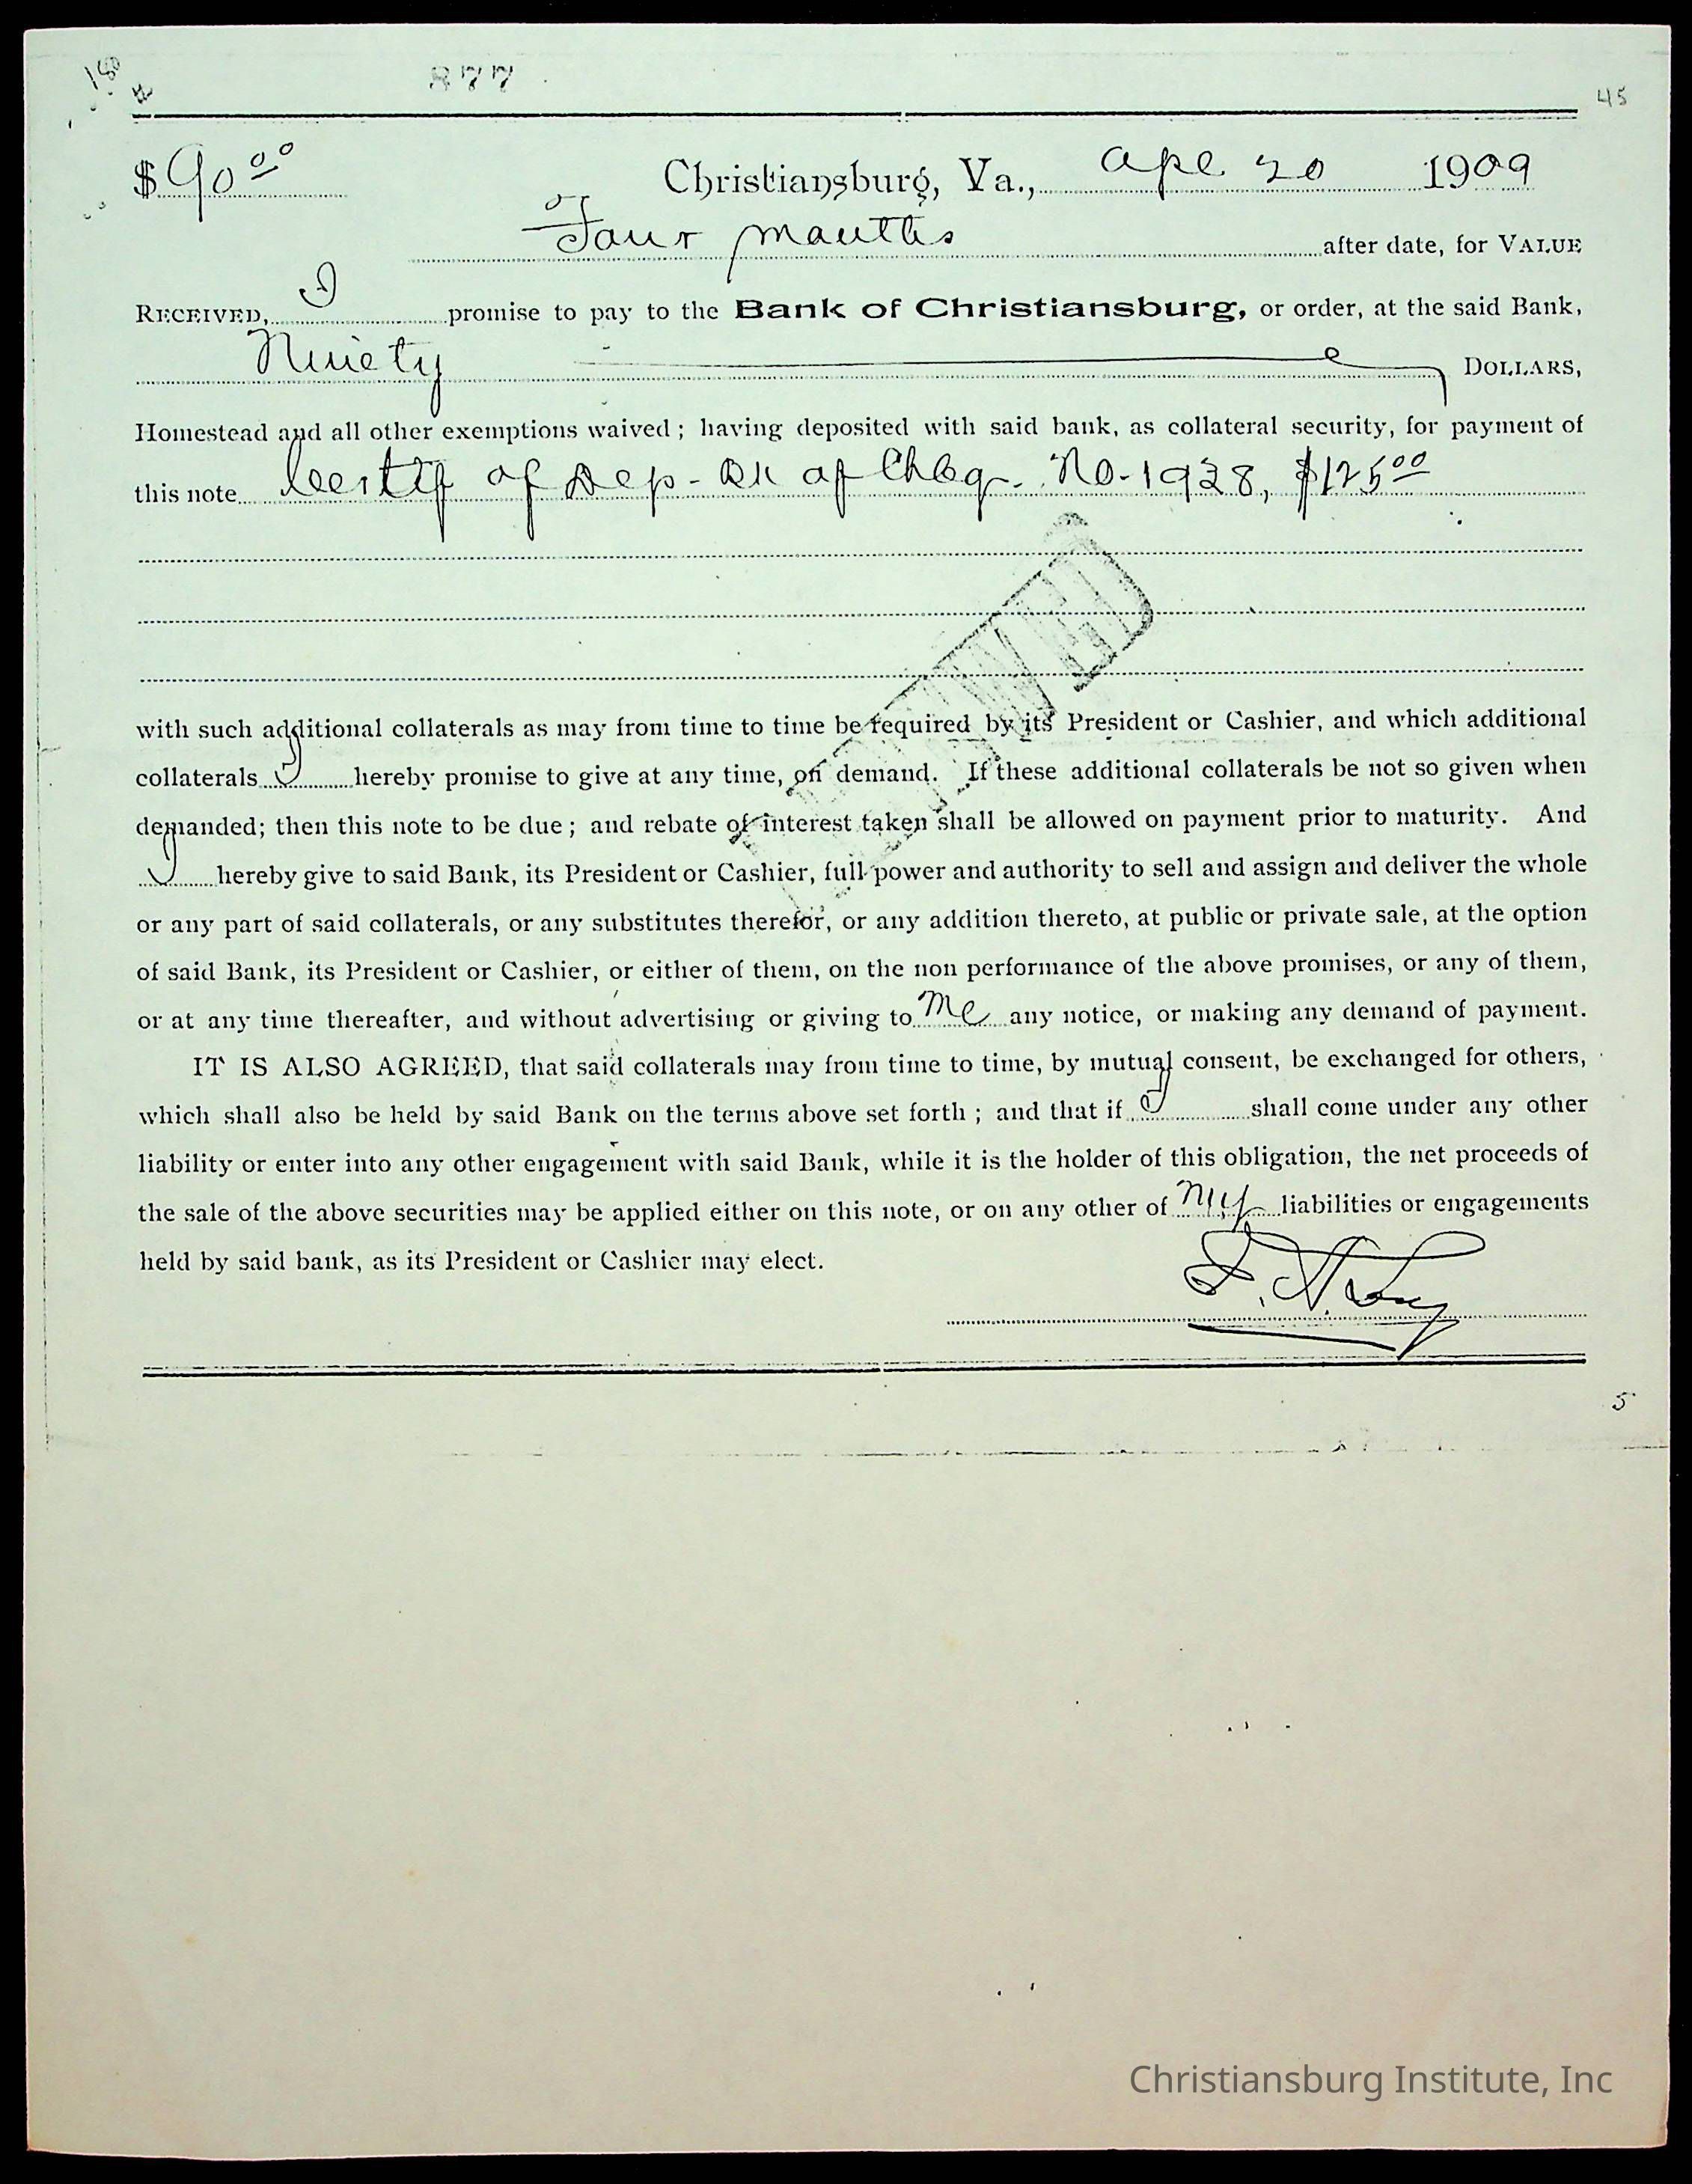 877
45
$ 90 00 Christiansburg, Va., Apl 20 1909
Four months after date, for VALUE
RECEIVED, I promise to pay to the Bank of Christiansburg, or order, at the said Bank,
Ninety DOLLARS,
Homestead and all other exemptions waived; having deposited with said bank, as collateral security, for payment of
this note Certif of Dep - Bk of Chbg. No. 1938, $125 00
with such additional collaterals as may from time to time be required by its President or Cashier, and which additional
collaterals I hereby promise to give at any time, on demand. If these additional collaterals be not so given when
demanded; then this note to be due; and rebate of interest taken shall be allowed on payment prior to maturity. And
I hereby give to said Bank, its President or Cashier, full power and authority to sell and assign and deliver the whole
or any part of said collaterals, or any substitutes therefor, or any addition thereto, at public or private sale, at the option
of said Bank, its President or Cashier, or either of them, on the non performance of the above promises, or any of them,
or at any time thereafter, and without advertising or giving to me any notice, or making any demand of payment.
IT IS ALSO AGREED, that said collaterals may from time to time, by mutual consent, be exchanged for others,
which shall also be held by said Bank on the terms above set forth; and that if I shall come under any other
liability or enter into any other engagement with said Bank, while it is the holder of this obligation, the net proceeds of
the sale of the above securities may be applied either on this note, or on any other of my liabilities or engagements
held by said bank, as its President or Cashier may elect.
5
Christiansburg Institute, Inc